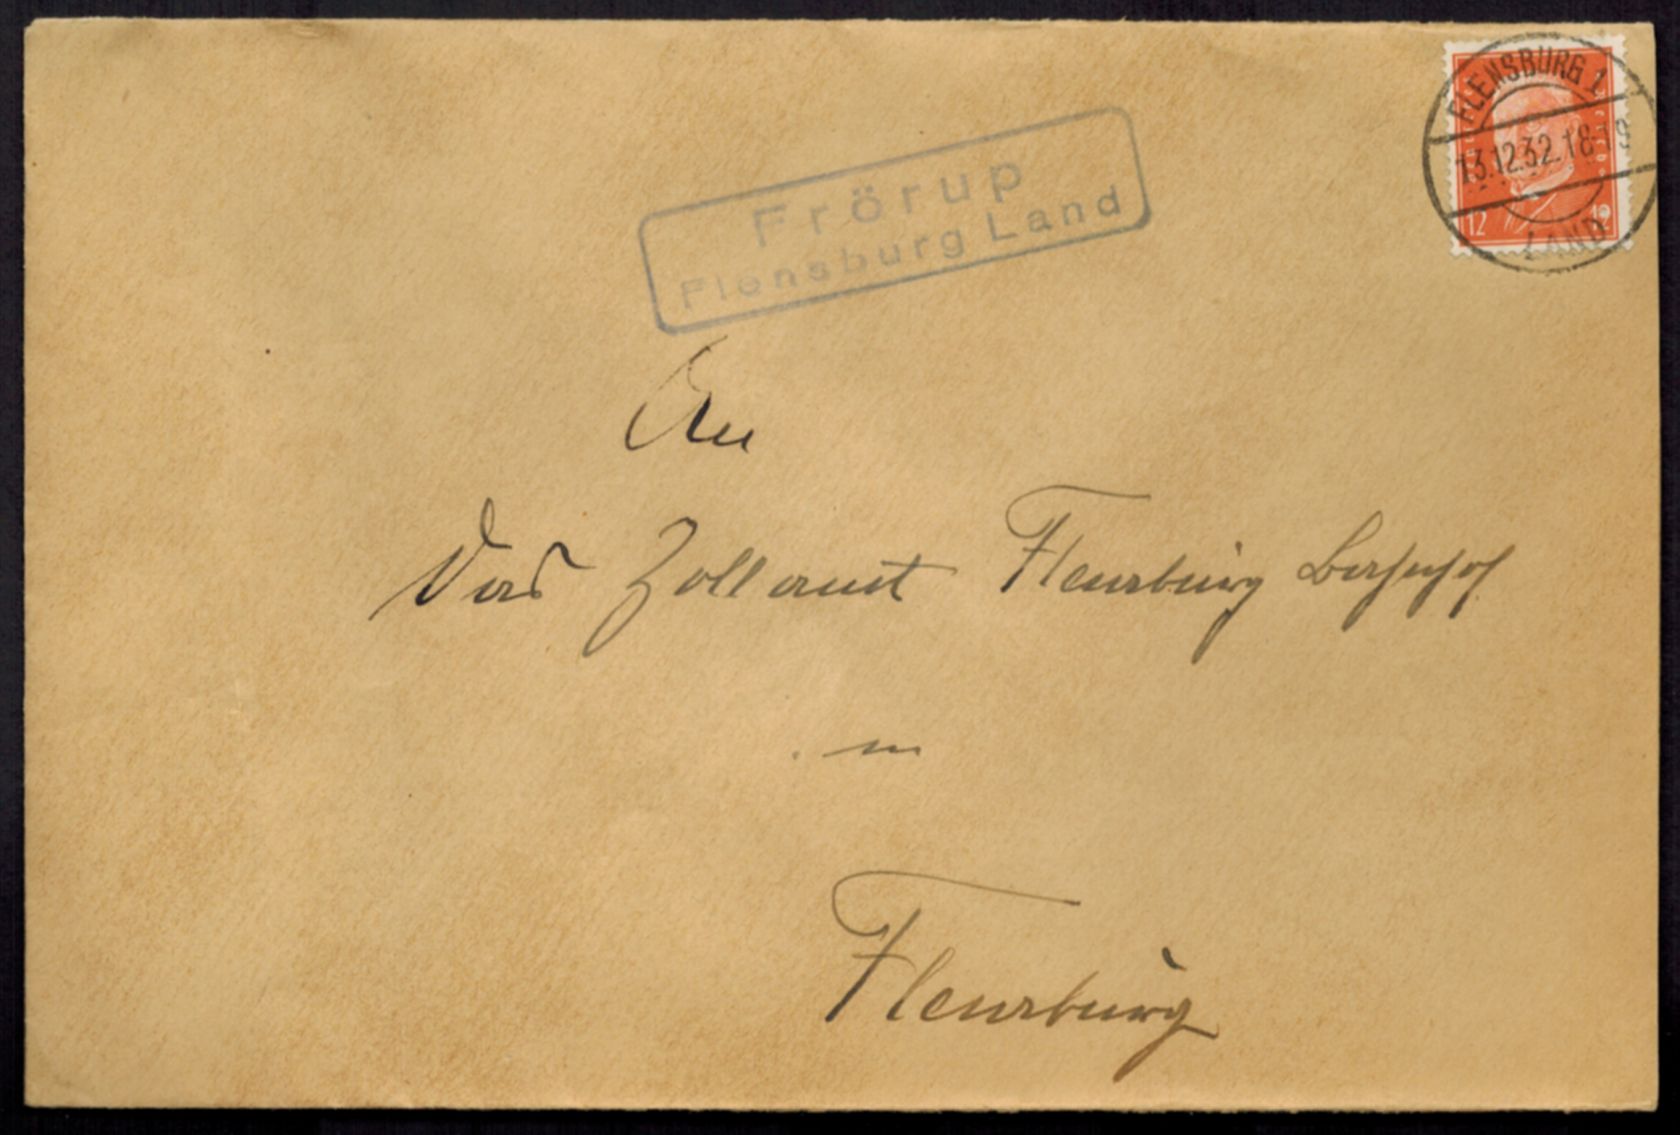 FLENSBURG 1
13.12.32.18-19
LAND
12 12
Frörup
Flensburg Land
An
Das Zollamt Flensburg Bahnhof
in
Flensburg